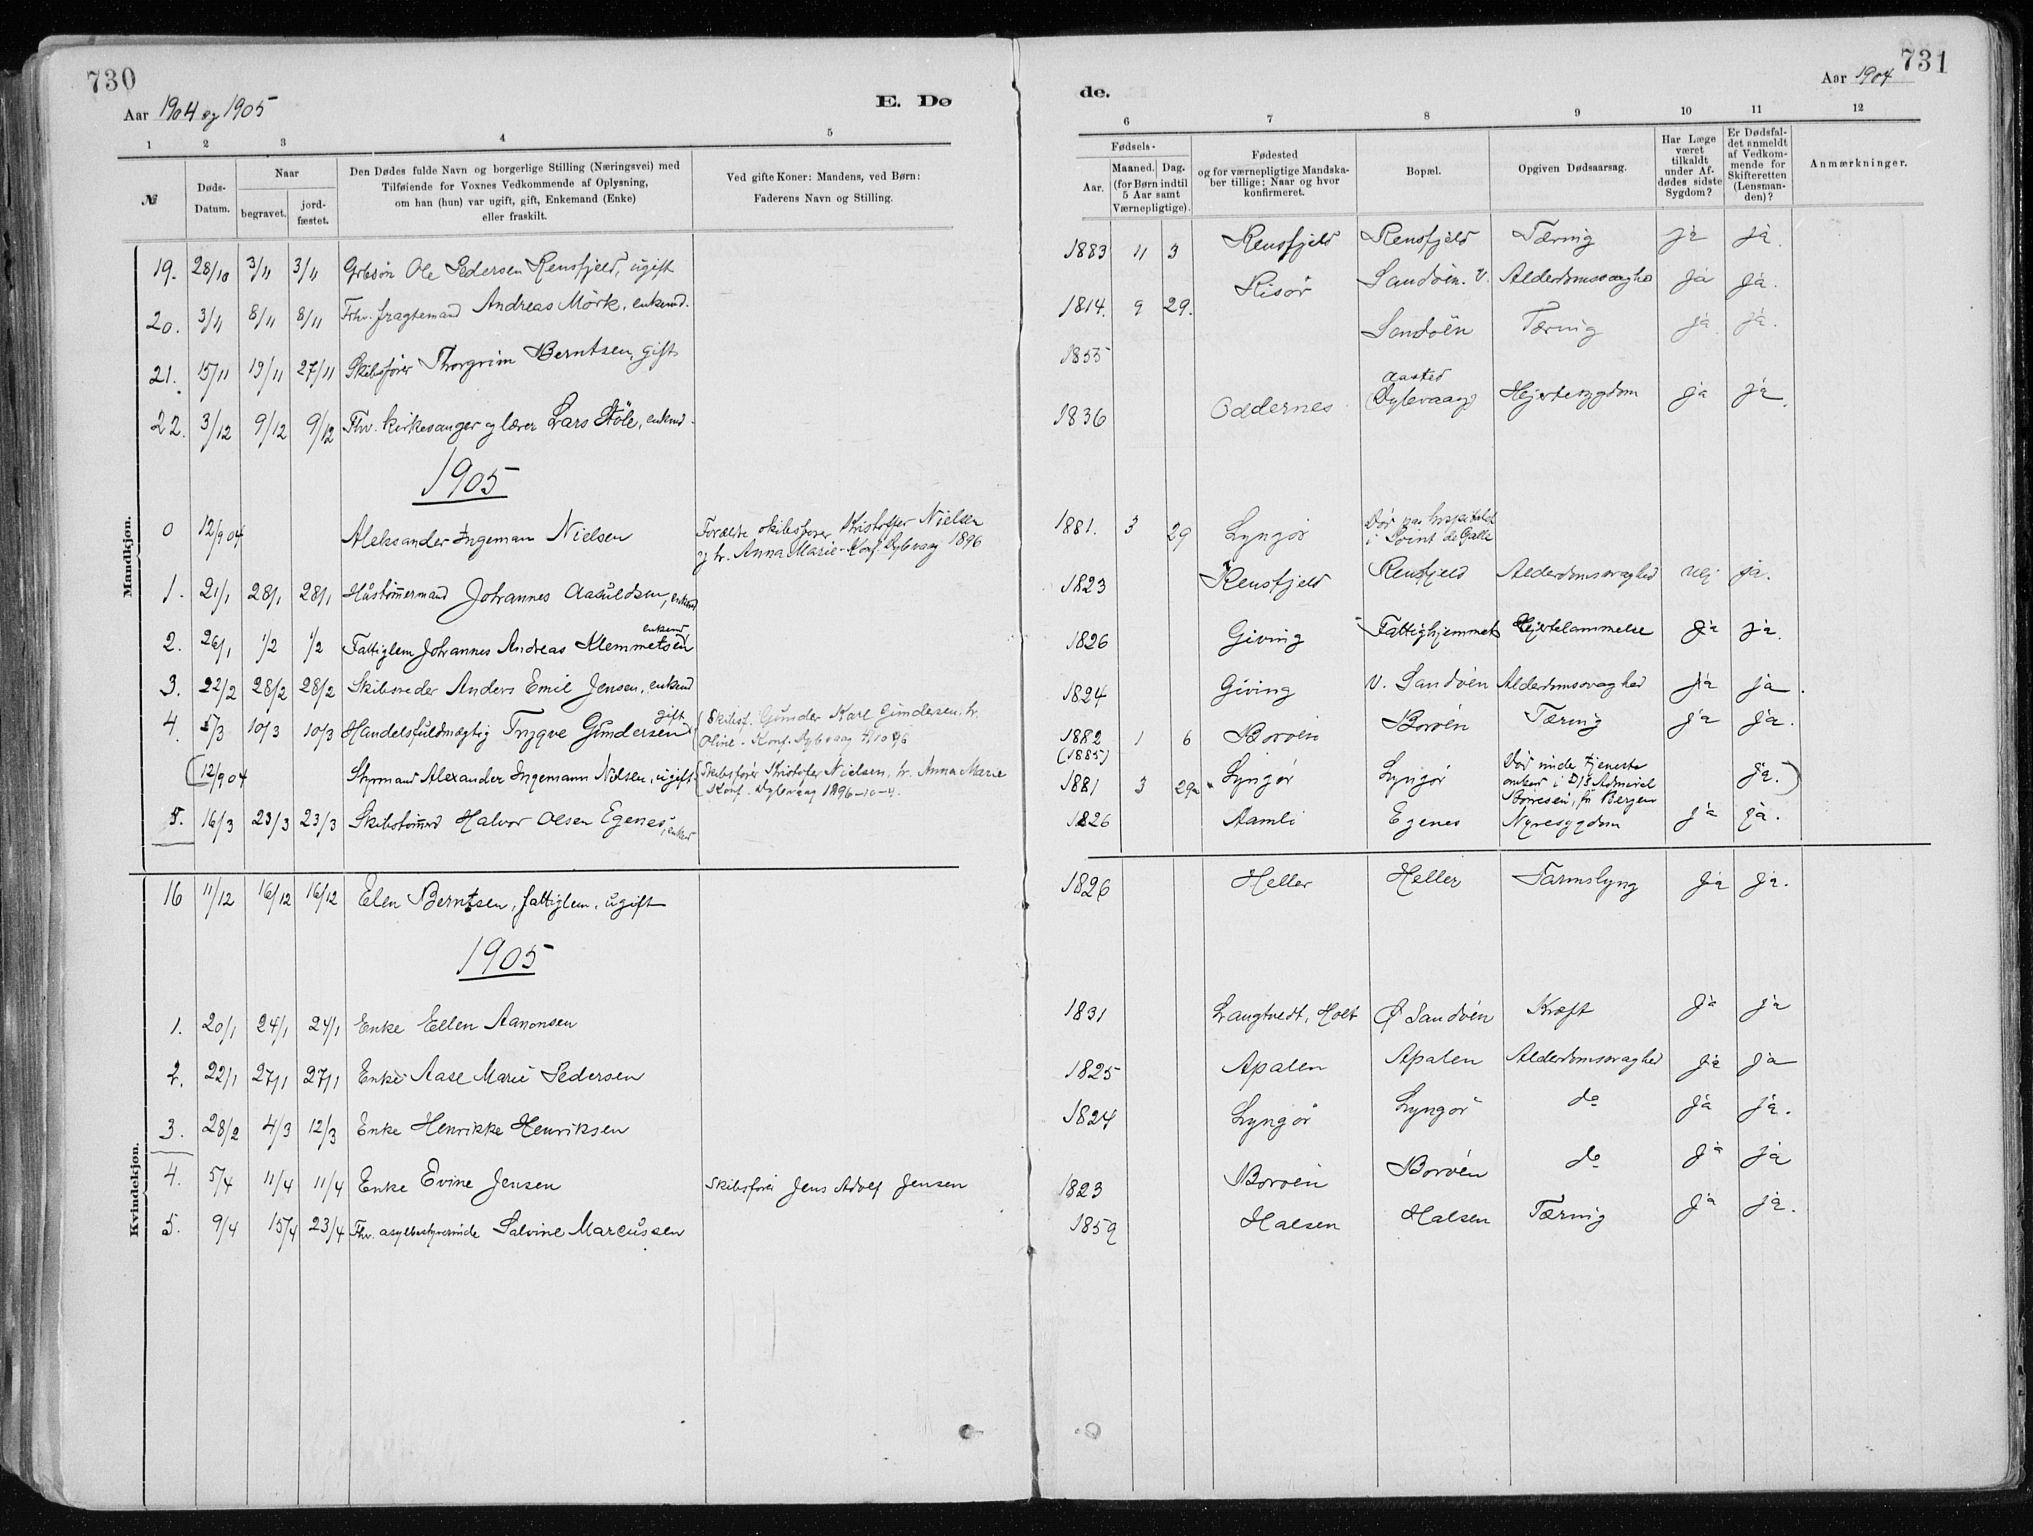 730
Aar 1904 og 1905
E. Dø
1 2 3 4 5
№
Døds-
Datum.
Naar
begravet.
jord-
fæstet.
Den Dødes fulde Navn og borgerlige Stilling (Næringsvei) med
Tilføiende for Voxnes Vedkommende af Oplysning,
om han (hun) var ugift, gift, Enkemand (Enke)
eller fraskilt.
Ved gifte Koner: Mandens, ved Børn:
Faderens Navn og Stilling.
Mandkjøn.
19. 28/10 3/11 3/11 Grbsøn Ole Pedersen Rensfjeld, ugift
20. 3/11 8/11 8/11 Frhv. fragtemand Andreas Mörk, enkemd.
21. 15/11 19/11 27/11 Skibsfører Thorgrim Berntsen, gift
22. 3/12 9/12 9/12 Fhv. kirkesanger og lærer Lars Stöle, enkemd.
1905
0 12/9 04 Aleksander Ingeman Nielsen Forældre skibsfører Kristoffer Nielsen
og h. Anna Marie - Konf. Dybvaag 1896
1. 21/1 28/1 28/1 Hustømmermand Johannes Aasuldsen, enkemd
2. 26/1 1/2 1/2 Fattiglem Johannes Andreas Klemmetsen enkemd
3. 22/2 28/2 28/2 Skibsreder Anders Emil Jensen, enkemd
4. 5/3 10/3 10/3 Handelsfuldmægtig Trygve Gundersen gift Skibsf. Gunder Karl Gundersen, h.
Oline. Konf. Dybvaag 4/10 96
(12/9 04 Styrmand Alexander Ingemann Nilsen, ugift Skibsfører Kristofer Nielsen, h. Anna Marie
Konf. Dybvaag 1896-10-4.
5. 16/3 23/3 23/3 Skibstømmd Halvor Olsen Egenes, enkmd
Kvindekjøn.
16 11/12 16/12 16/12 Elen Berntsen, fattiglem, ugift
1905
1. 20/1 24/1 24/1 Enke Ellen Aanonsen
2. 22/1 27/1 27/1 Enke Aase Marie Pedersen
3. 28/2 4/3 12/3 Enke Henrikke Henriksen
4. 5/4 11/4 11/4 Enke Evine Jensen Skibsfører Jens Adolf Jensen
5. 9/4 15/4 23/4 Fhv. asylbestyrerinde Salvine Marcussen
731
Aar 1904
de.
6 7 8 9 10 11 12
Fødsels-
Aar.
Maaned. Dag.
(for Børn indtil
5 Aar samt
Værnepligtige).
Fødested
og for værnepligtige Mandska-
ber tillige: Naar og hvor
konfirmeret.
Bopæl.
Opgiven Dødsaarsag.
Har Læge
været
tilkaldt
under Af-
dødes sidste
Sygdom?
Er Dødsfal-
det anmeldt
af Vedkom-
mende for
Skifteretten
(Lensman-
den)?
Anmærkninger.
1883 11 3 Rensfjeld Rensfjeld Tæring ja ja.
1814. 9 29. Risør Sandøen. V. Alderdomssvaghed ja ja.
1855 Sandøen Tæring ja ja.
1836 Oddernes Aasted Dybvaag Hjertesygdom ja ja.
1881. 3 29 Lyngør Dør paa hospitalet
i Point de Galle
1823 Rensfjeld Rensfjeld Alderdomssvaghed nei ja.
1826 Giving Fattighjemmet Hjertelammelse ja ja.
1824 Giving V. Sandøen Alderdomssvaghed ja ja.
1882 1 6 Borøen Borøen Tæring ja ja.
(1885)
1881 3 29 Lyngør Lyngør Død under tjeneste
ombord i D/S Admiral
Børresen, fra Bergen ja.)
1826 Aamli Egenes Nyresygdom ja ja.
1826 Heller Heller Tarmslyng ja ja.
1831 Langtvedt, Holt Ø Sandøen Kræft ja ja
1825 Apalen Apalen Alderdomssvaghed ja ja
1824 Lyngør Lyngør do ja ja.
1823 Borøen Borøen do ja ja
1859 Halsen Halsen Tæring ja ja.